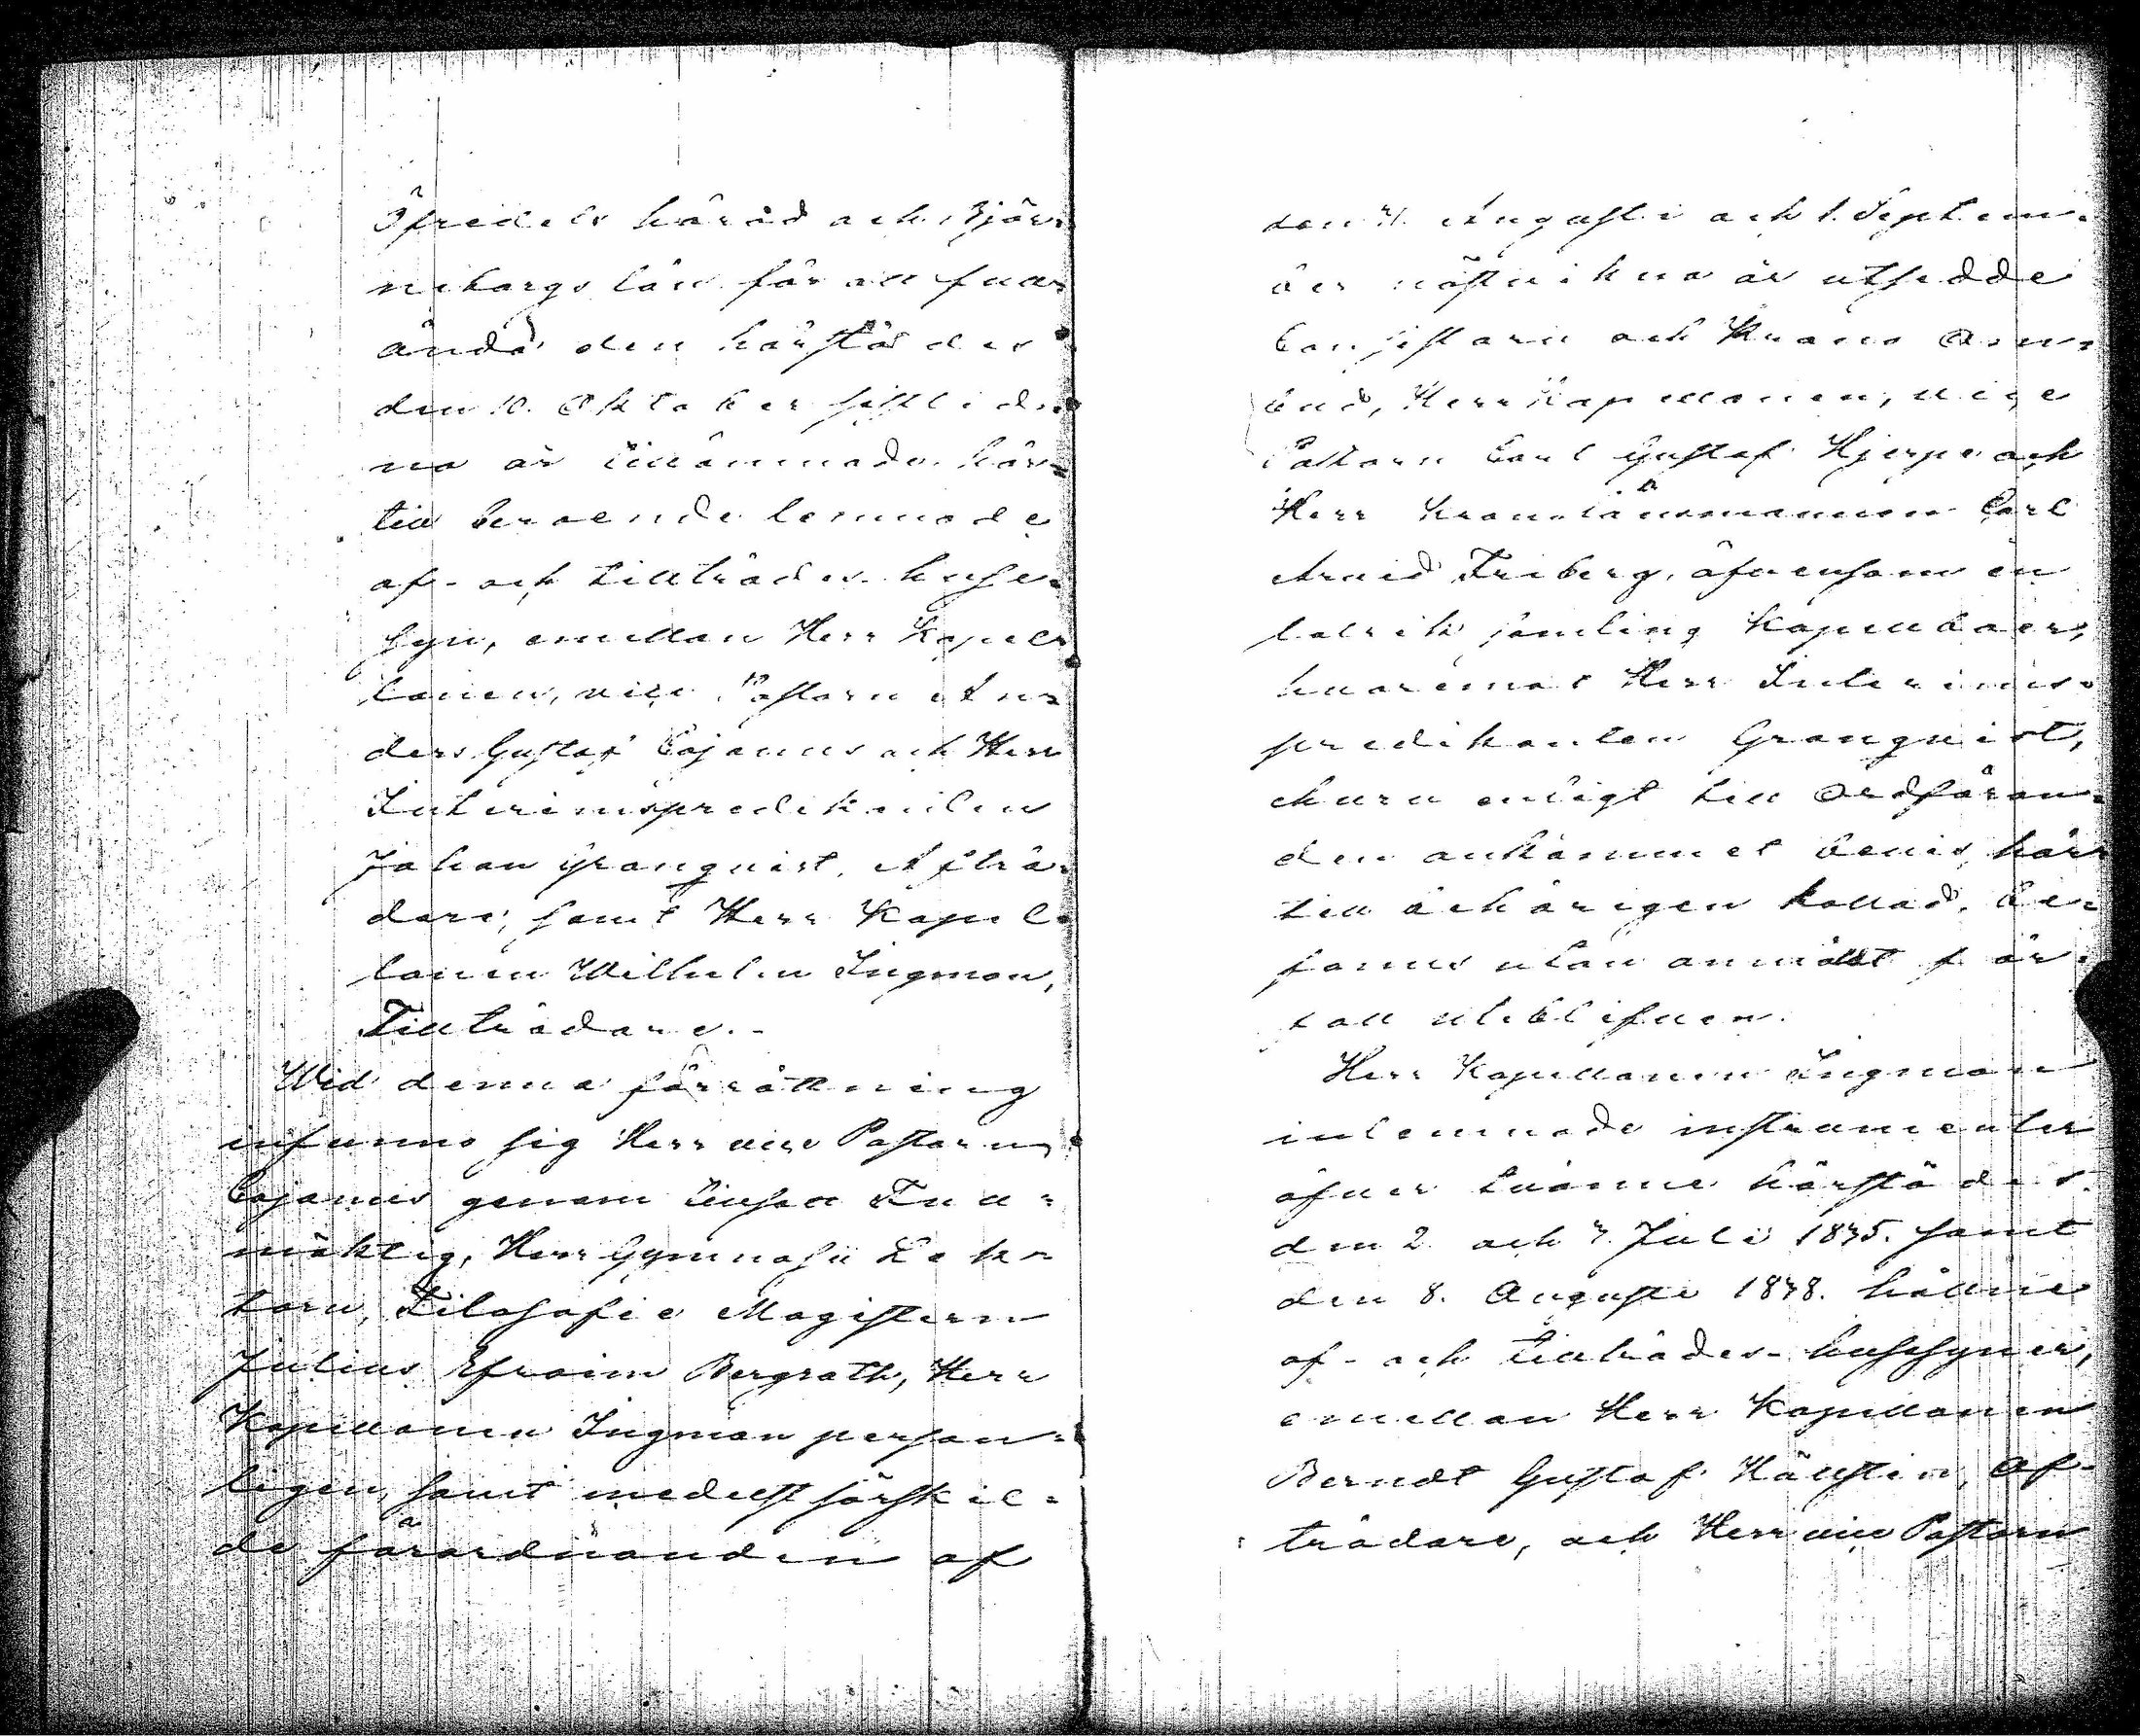 Öfredels härad och Björ-
neborgs län för att full-
ända den härstädes
den 10. Oktober sistlid-
na år tillämnade, här-
till beroende lemnade
af- och tillträdes-huse-
syn, emellan Herr Kapel-
lanen, vice Pastorn An-
ders Gustaf Cajanus och Herr
Interimspredikanten
Johan Granquist, Afträ-
dare, samt Herr Kapel-
lanen Wilhelm Ingman,
Tillträdare.-
Wid denna förrättning
infunno sig Herr vice Pastorn
Cajanus genom lifsen Full-
mäktig, Herr Gymnasii Lek-
torn, Filosofie Magistern
Julius Efraim Bergroth, Herr
Kapellanen Ingman person-
ligen, samt medelst särskil-
de förordnanden af
den 31. Augusti och 1. Septem-
ber nästvikna år utsedde
Consistorii och Krono Om-
bud, Herr Kapellanen, vice
Pastorn Carl Gustaf Hjerpe och
Herr Kronolänsmannen Carl
Arvid Friberg, äfvensom en
talrik samling Kapellboer,
hvaremot Herr Interims-
predikanten Granquist,
churu enligt till Ordföran-
den ankommet bevis här-
till behörigen kallad, be-
fanns utan anmäldt för-
fall uteblifven.
Herr Kapellanen Ingman
inlemnade instrumenter
öfver tvänne härstädes
den 2. och 3. Juli 1875. samt
den 8. Augusti 1878. hållne
af- och tillträdes-hussyner,
emellan Herr Kapellanen
Berndt Gustaf Hällstén, Af-
trädare, och Herr vice Pastorn